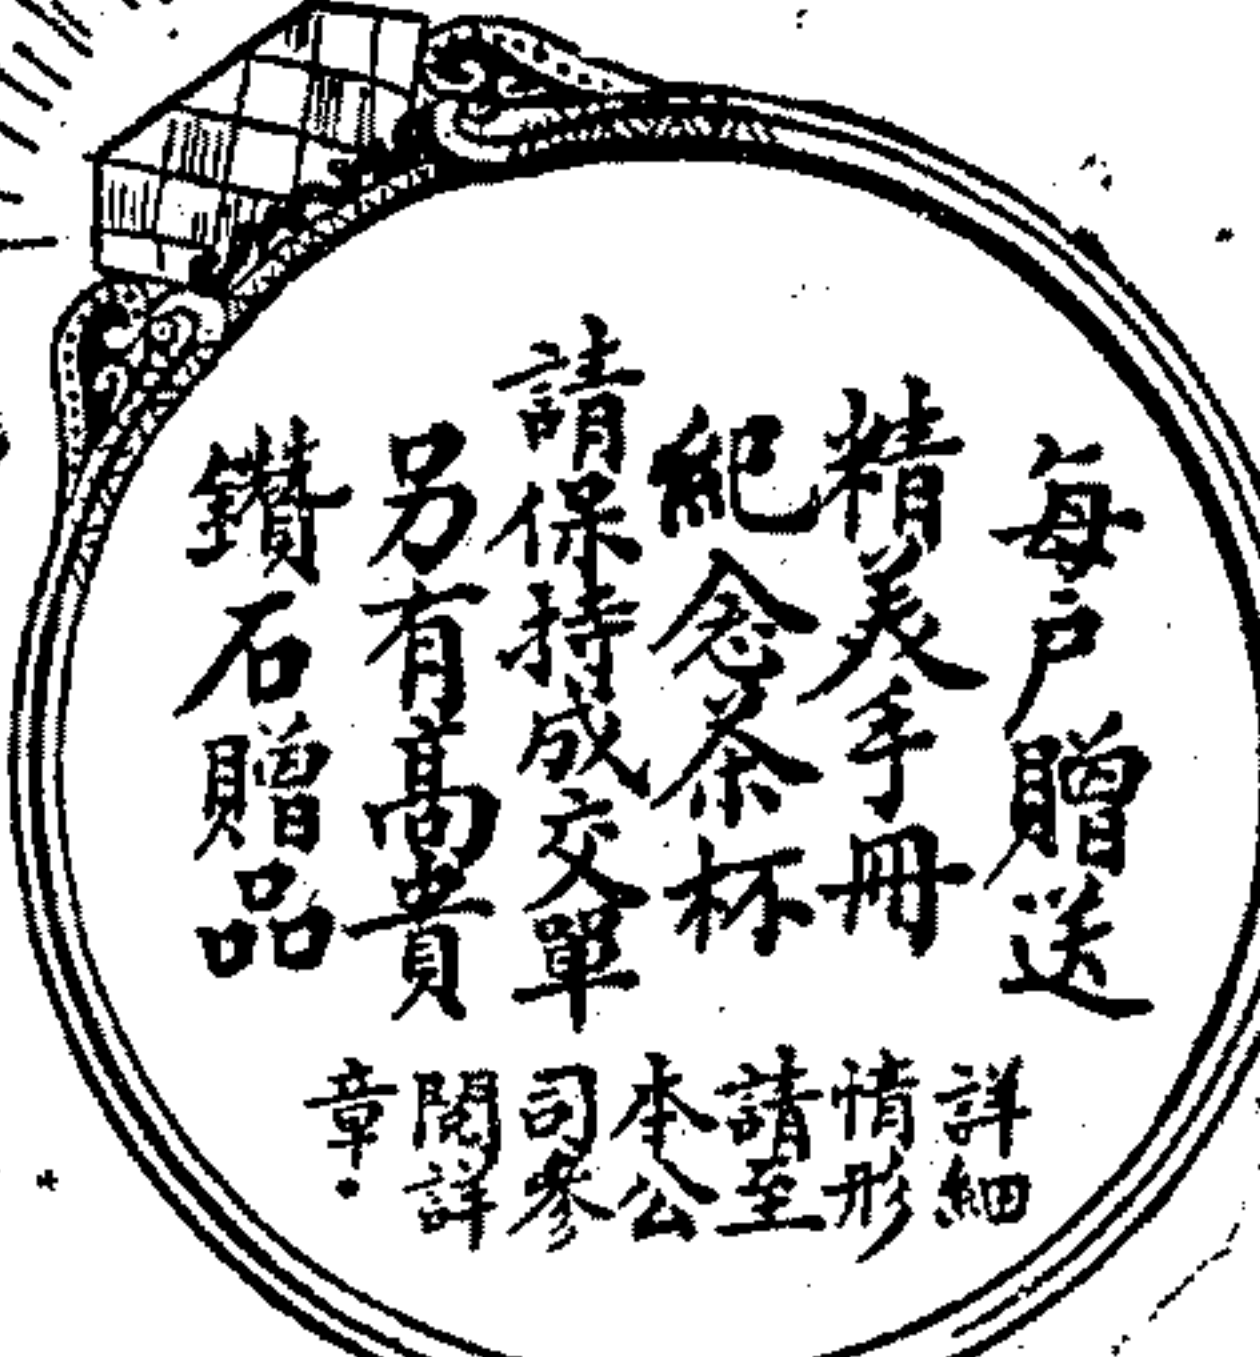 每戶贈送
精美手冊
紀念茶杯
請保持成交單
另有高貴
鑽石贈品
詳細
情形
請至
本公
司參
閱詳
章！